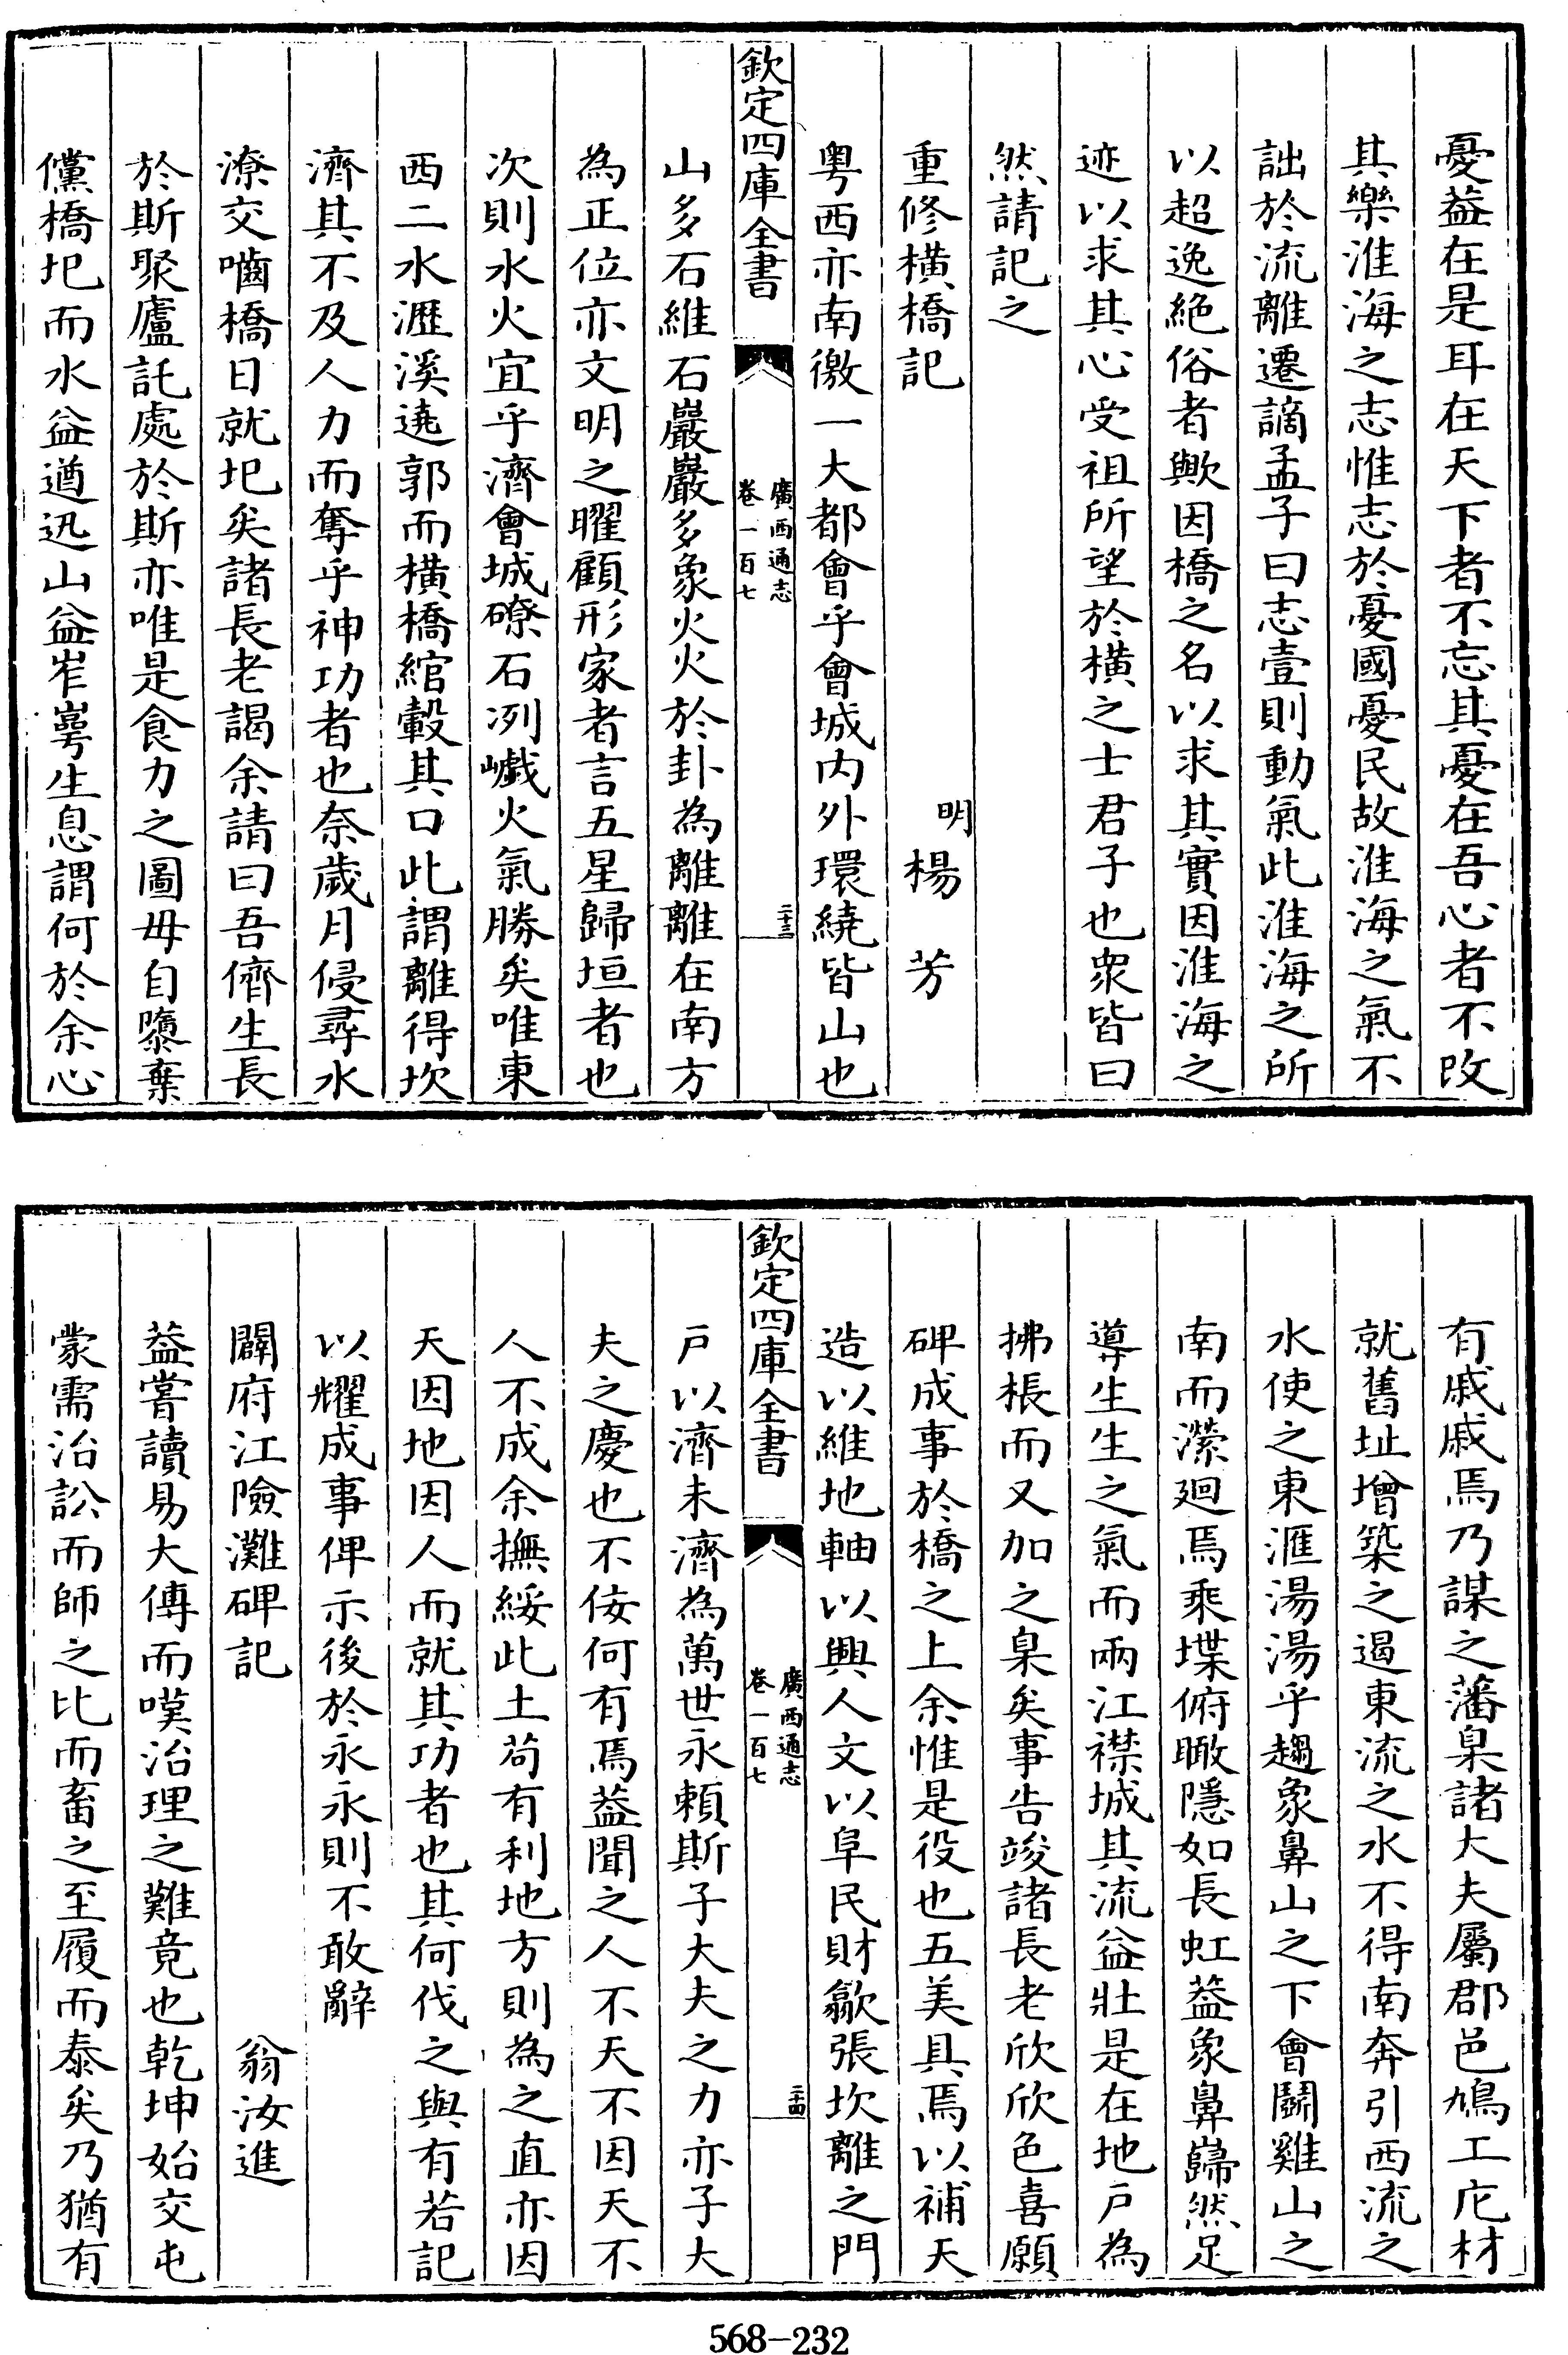 憂葢在是耳在天下者不忘其憂在吾心者不改
其樂淮海之志惟志於憂國憂民故淮海之氣不
詘於流離遷謫孟子曰志壹則動氣此淮海之所
以超逸絕俗者歟因橋之名以求其實因淮海之
迹以求其心受祖所望於橫之士君子也衆皆曰
然請記之
重修橫橋記
明 楊 芳
粤西亦南徼一大都會乎會城内外環繞皆山也
欽定四庫全書
廣西通志
卷一百七
二十三
山多石維石巖巖多象火火於卦為離離在南方
為正位亦文明之曜顧形家者言五星歸垣者也
次則水火宜乎濟會城磜石冽巇火氣勝矣唯東
西二水瀝溪遶郭而橫橋綰轂其口此謂離得坎
濟其不及人力而奪乎神功者也奈歲月侵尋水
潦交嚙橋日就圯矣諸長老謁余請曰吾儕生長
於斯聚廬託處於斯亦唯是食力之圖毋自隳棄
儻橋圯而水益遒迅山益岝崿生息謂何於余心
有戚戚焉乃謀之藩臬諸大夫屬郡邑鳩工庀材
就舊址增築之遏東流之水不得南奔引西流之
水使之東滙湯湯乎趨象鼻山之下會鬭雞山之
南而瀠廻焉乘堞俯瞰隱如長虹葢象鼻巋然足
導生生之氣而兩江襟城其流益壯是在地戶為
拂棖而又加之臬矣事告竣諸長老欣欣色喜願
碑成事於橋之上余惟是役也五美具焉以補天
造以維地軸以興人文以阜民財歙張坎離之門
欽定四庫全書
廣西通志
卷一百七
二十四
戸以濟未濟為萬世永頼斯子大夫之力亦子大
夫之慶也不佞何有焉葢聞之人不天不因天不
人不成余撫綏此土苟有利地方則為之直亦因
天因地因人而就其功者也其何伐之與有若記
以耀成事俾示後於永永則不敢辭
闢府江險灘碑記
翁汝進
葢嘗讀易大傳而嘆治理之難竟也乾坤始交屯
蒙需治訟而師之比而畜之至履而泰矣乃猶有
568-232